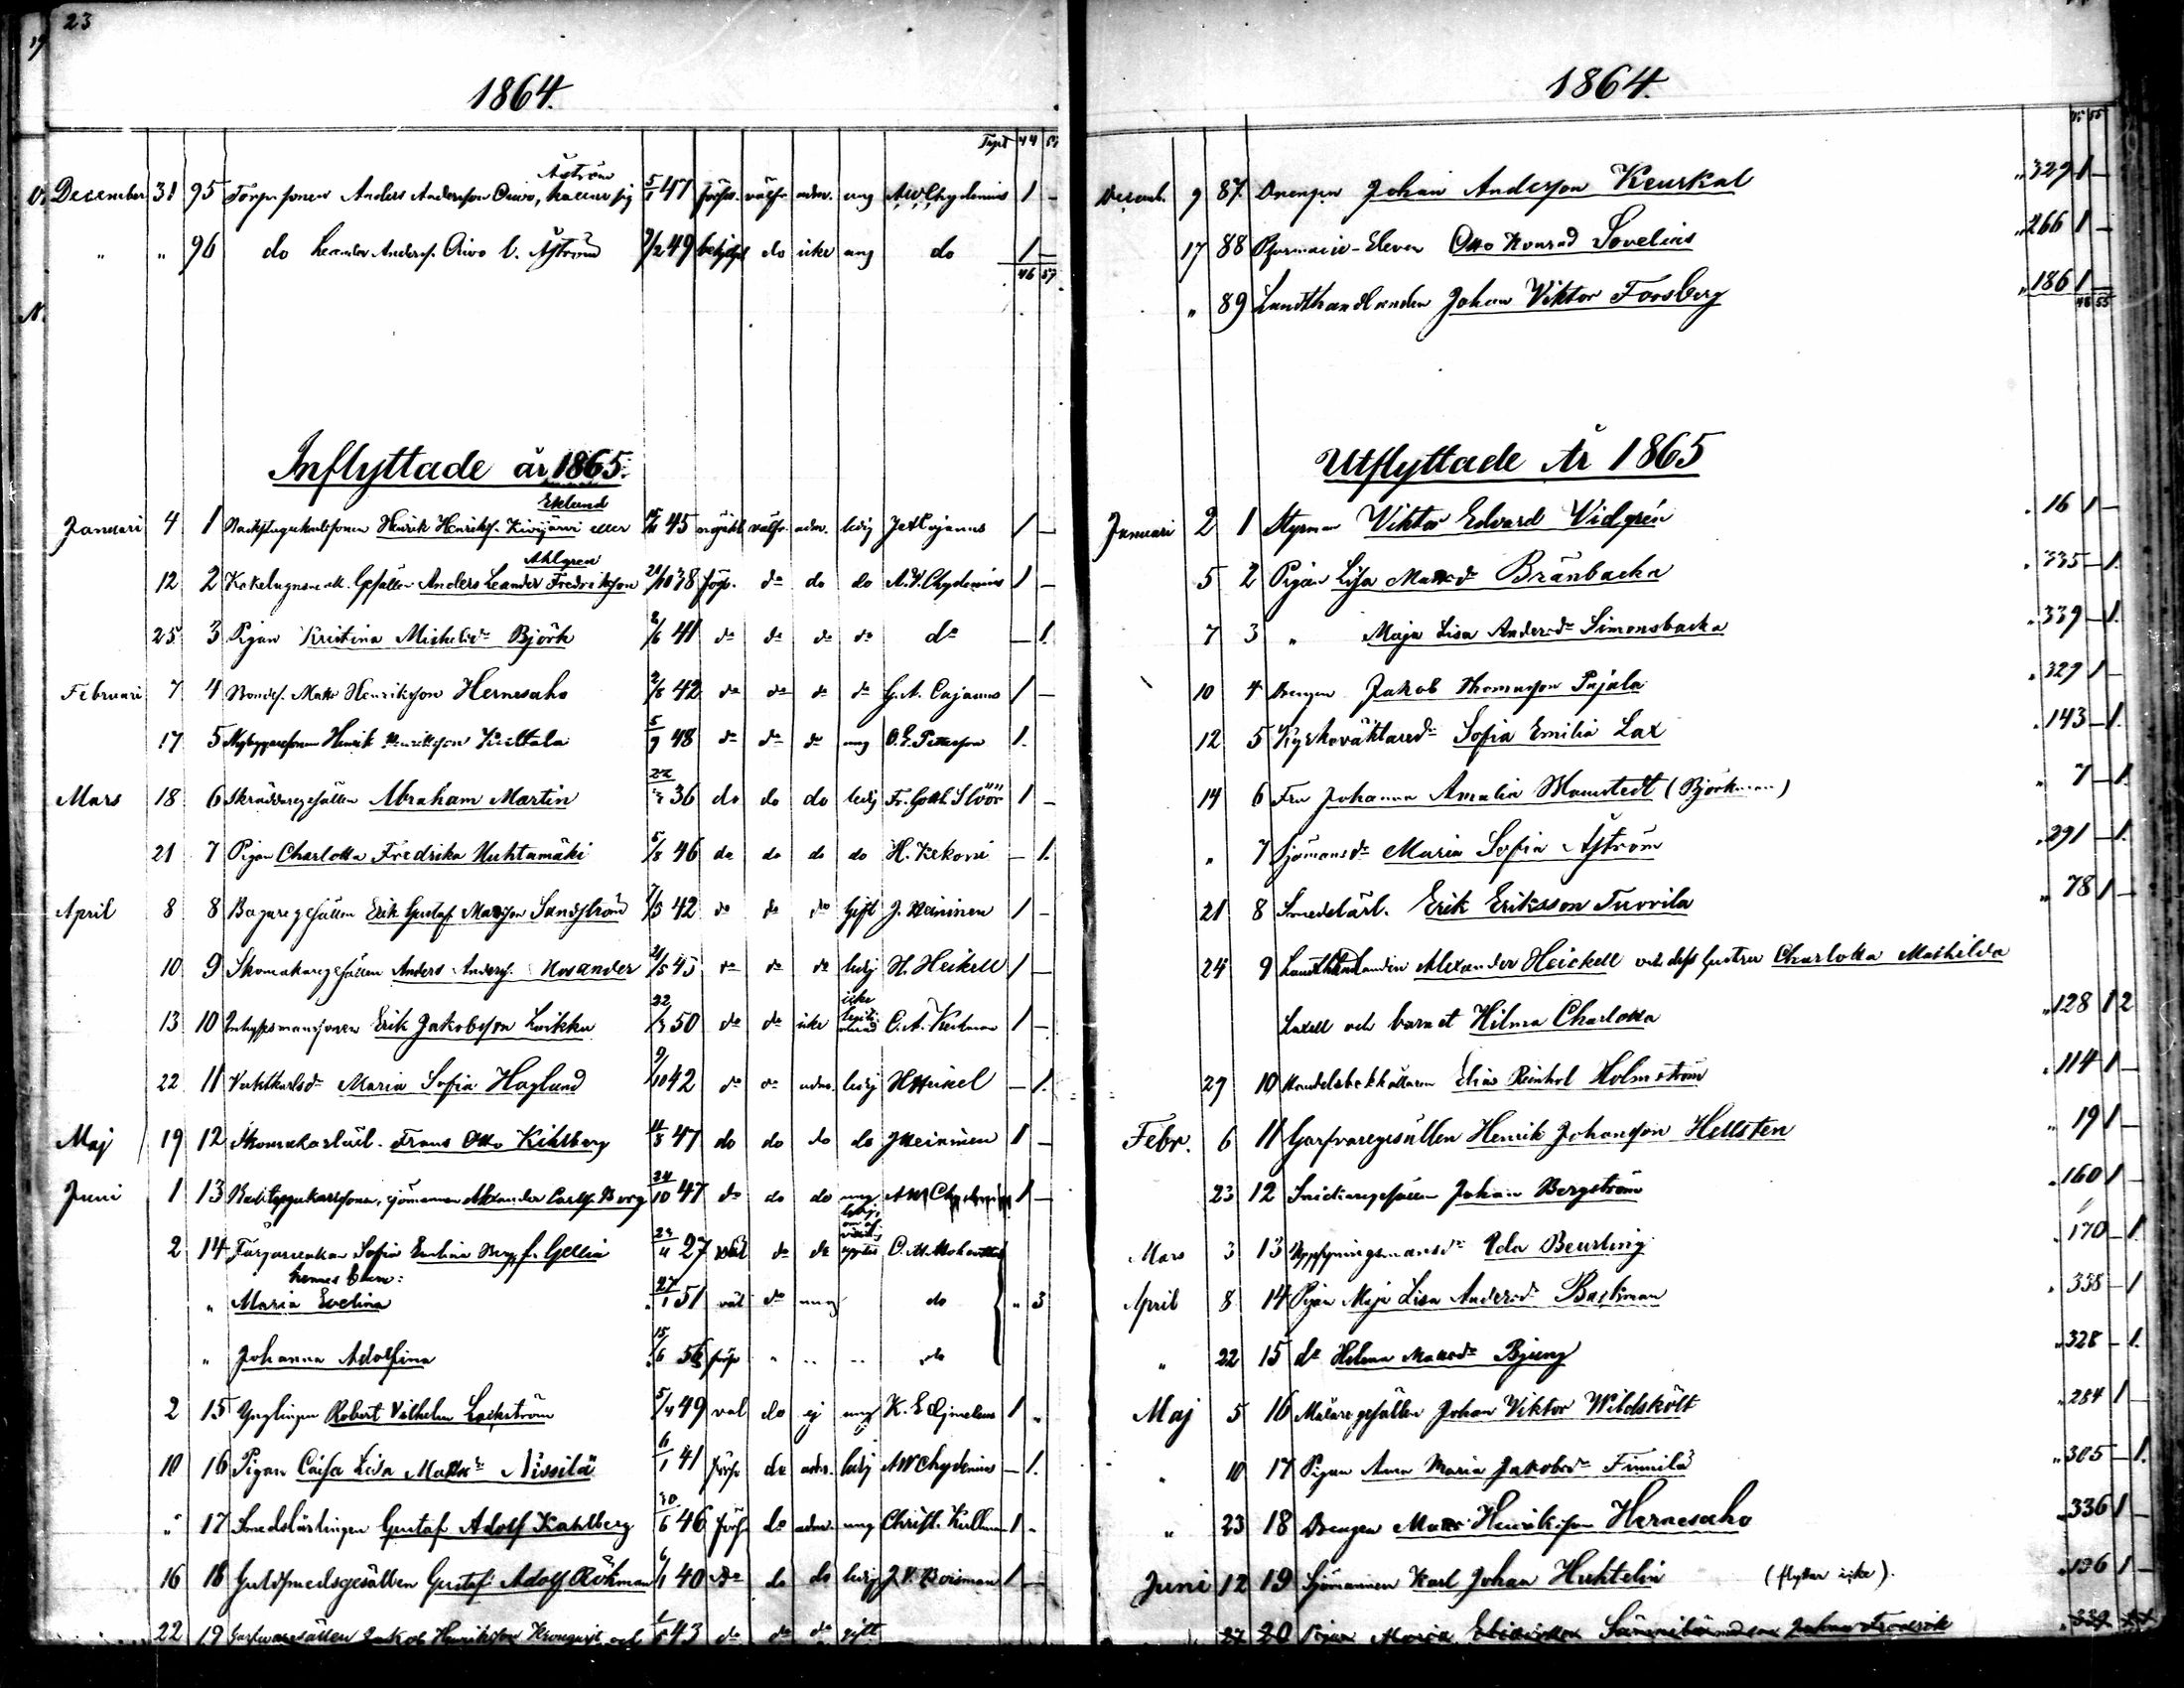 23
1864.
Trpt 44 57
December 31 95 Torparsonen Anders Andersson Oravo, kallar sig Åström 5/1 47 förfar. välfr. adm. ung AW Chydenius 1 –
" " 96 do Leander Anderss. Orivo l. Åström 9/2 49 do icke ung do 1 –
46 57
Inflyttade år 1865.
Januari 4 1 Henrik Henrikss. Kivijärvi eller Eklund 45 välfr. adm. ledig Cajanus 1 –
12 2 Kakelugnsmak. Gesällen Anders Leander Fredriksson Ahlgren 21/10 38 förf. do do do A.W. Chydenius 1 –
25 3 Pigan Kristina Michelsdr Björk 2/6 41 do do do do do – 1.
Februari 7 4 Bondes. Matts Henriksson Hernesaho 2/8 42 do do do do G.A. Cajanus 1 –
17 5 Nybyggaresonen Henrik Henriksson Kultala 5/9 48 do do do ung O.E. Petterson 1.
Mars 18 6 Skräddaregesällen Abraham Martin 22/3 36 do do do ledig Fr. Gotth. Slöör 1 –
21 7 Pigan Charlotta Fredrika Huhtamäki 5/8 46 do do do do H. Kekoni – 1.
April 8 8 Bagaregesällen Erik Gustaf Mattsson Sandström 7/5 42 do do do Gift J. Reininen 1 –
10 9 Skomakaregesällen Anders Anderss. Kosander 21/5 45 do do do ledig H. Heikell 1 –
13 10 Inhysesmansonen Erik Jakobsson Luikku 22/3 50 do do icke icke legiti- merad C.A. Keckman 1 –
22 11 Vaktkarlsdr Maria Sofia Haglund 9/10 42 do do adm. ledig H Heikel – 1.
Maj 19 12 Skomakarlärl. Frans Otto Kihlberg 11/3 47 do do do do J Reininen 1 –
Juni 1 13 sjömannen Alexander Carlss. Berg 24/10 47 do do do ung AW Chydenius 1 –
2 14 Färgareenkan Sofia Evelina Berg f. Gellin 24/4 27 väl do do C.M. 
hennes barn:
" Maria Evelina 27/1 51 väl do ung do " 3
" Johanna Adolfina 15/6 56 förf " " " do
2 15 Ynglingen Robert Vilhelm Lackström 5/4 49 väl do ej ung K. E. 1 "
10 16 Pigan Caisa Lisa Mattsdr Nissilä 6/1 41 förf do adm. ledig A W Chydenius – 1.
" 17 Smedslärlingen Gustaf Adolf Kahlberg 30/6 46 förf. do adm. ung Christ. Kullman 1 –
16 18 Guldsmedsgesällen Gustaf Adolf Röhman 6/1 40 do do do ledig J.V. Roisman 1 –
22 19 Garfvaregesällen Jakob Henriksson Kronqvist och 43 do do do gift
1864.
55
Decemb. 9 87 Drengen Johan Andersson Keuskal " 329 1 –
17 88 Pharmacie-Eleven Otto Konrad Sovelius " 266 1 –
" 89 Landthandlanden Johan Viktor Forsberg " 186 1 –
48 55
Utflyttade År 1865
Januari 2 1 Styrman Viktor Edvard Vidgrén " 16 1 –
5 2 Pigan Lisa Mattsdr Bränbacka " 335 – 1.
7 3 " Maja Lisa Andersdr Simonsbacka " 339 – 1.
10 4 Drengen Jakob Thomasson Pajala " 329 1 –
12 5 Kyrkoväktaredr Sofia Emilia Lax " 143 – 1.
14 6 Fru Johanna Amalia Mannstedt (Björkman) " 7 – 1.
" 7 Sjömansdr Maria Sofia Åström " 291 – 1.
21 8 Smedslärl. Erik Eriksson Tuorila " 78 1 –
24 9 Landthandlanden Alexander Heickell och dess hustru Charlotta Mathilda
Laxell och barnet Hilma Charlotta " 128 1 2
29 10 Handelsbokhållaren Elias Reinhol Holmström " 114 1 –
Febr. 6 11 Garfvaregesällen Henrik Johansson Hellsten " 19 1 –
23 12 Snickaregesällen Johan Bergström " 160 1 –
Mars 3 13 Uppsyningsmansdr Ida Beurling " 170 – 1
April 8 14 Pigan Maja Lisa Andersdr Backman " 338 – 1
" 22 15 do Helena Mattsdr Bjeng " 328 – 1.
Maj 5 16 Målaregesällen Johan Viktor Wildskölt " 284 1 –
" 10 17 Pigan Anna Maria Jakobsdr Finnilä " 305 – 1.
" 23 18 Drengen Matts Henriksson Hernesaho " 336 1 –
Juni 12 19 Sjömannen Karl Johan Huhtelin (flyttar icke). " 136 1 –
27 20 Pigan Maria Johan Fredrik " 339